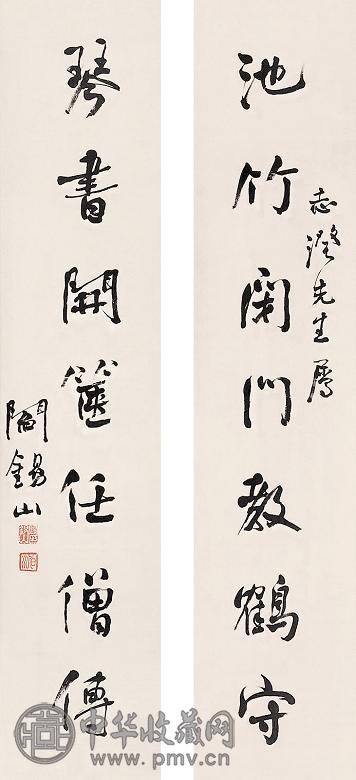 志先生屬
池竹閉門教鶴守
琴書開篋任僧傳
閻錫山
中华收藏网
www.pmv.cn